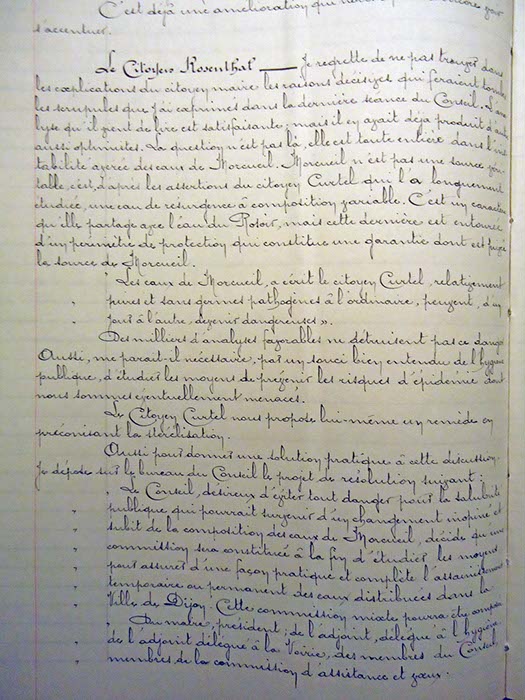 C'est déjà une amélioration qui
s'accentuer.
Le Citoyen Rosenthal — Je regrette de ne pas trouver dans
les explications du citoyen maire les raisons décisives qui feraient
les scrupules que j'ai exprimés dans la dernière séance du Conseil. L'ana
lyse qu'il vient de lire est satisfaisante; mais il y avait déjà produit d'
aussi optimistes. La question n'est pas là, elle est toute entière dans l'ins
tabilité avérée des eaux de Morcueil. Morcueil n'est pas une source
table, c'est, d'après les assertions du citoyen Curtel qui l'a longuement
étudiée, une eau de résurgence à composition variable. C'est un caractère
qu'elle partage avec l'eau du Rosoir, mais cette dernière est entourée
d'un périmètre de protection qui constitue une garantie dont est privée
la source de Morcueil.
" Les eaux de Morcueil, a écrit le citoyen Curtel, relativement
" pures et sans germes pathogènes à l'ordinaire, peuvent, d'un
" jour à l'autre, devenir dangereuses ».
Des milliers d'analyses favorables ne détruisent pas ce danger
Aussi, me paraît-il nécessaire, par un souci bien entendu de l'hygiène
publique, d'étudier les moyens de prévenir les risques d'épidémie dont
nous sommes éventuellement menacés.
Le Citoyen Curtel nous propose lui-même un remède en
préconisant la stérilisation.
Aussi pour donner une solution pratique à cette discussion.
Je dépose sur le bureau du Conseil le projet de résolution suivant:
" Le Conseil, désireux d'éviter tout danger pour la salubrité
" publique qui pourrait survenir d'un changement inopiné et
" subit de la composition des eaux de Morcueil, décide qu'une
" commission sera constituée à la fin d'étudier les moyens
" pour assurer d'une façon pratique et complète l'assainissement
" temporaire ou permanent des eaux distribuées dans la
" Ville de Dijon. Cette commission mixte pourra être composée
" Du maire, président; de l'adjoint, délégué à l'hygiène
" de l'adjoint délégué à la Voirie, des membres du Conseil
" membres de la commission d'assistance et